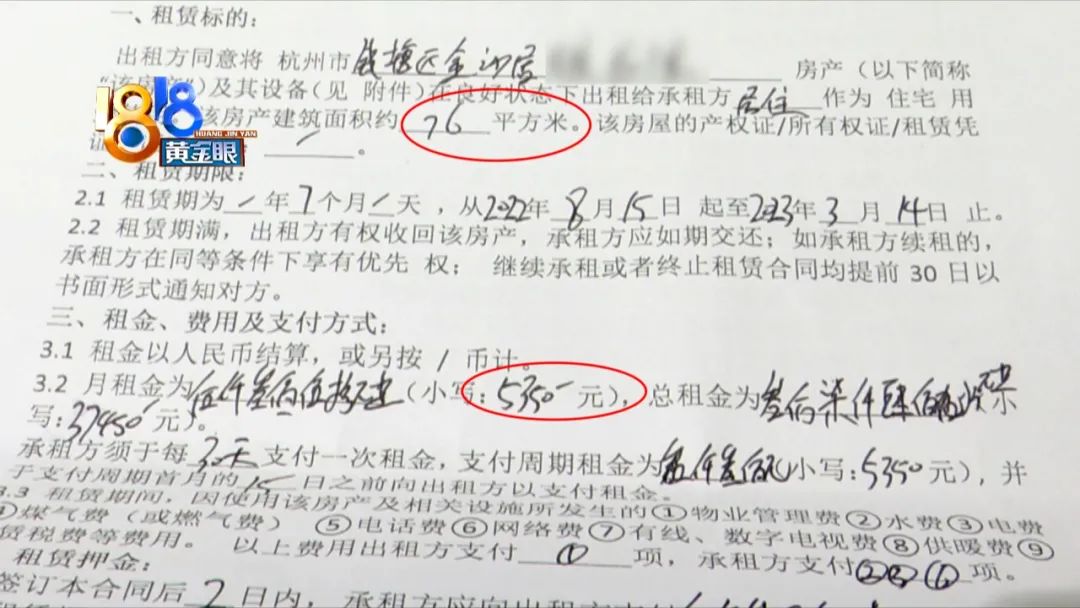 一、租赁标的:
出租方同意将 杭州市钱塘区金沙居 房产（以下简称
"该房产")及其设备(见 附件)在良好状态下出租给承租方居住作为 住宅 用
该房产建筑面积约 76 平方米。该房屋的产权证/所有权证/租赁凭
证 / 。
1818
HUANG JIN YAN
黄金眼
二、租赁期限:
2.1 租赁期为/年7个月/天，从2022年8月15日 起至2023年3月14日 止。
2.2 租赁期满，出租方有权收回该房产，承租方应如期交还；如承租方续租的，
承租方在同等条件下享有优先 权； 继续承租或者终止租赁合同均提前 30 日以
书面形式通知对方。
三、租金、费用及支付方式:
3.1 租金以人民币结算，或另按 / 币计。
3.2 月租金为伍仟叁佰伍拾元（小写:5350 元)，总租金为叁万柒仟肆佰
写:37450 元)。
承租方须于每30天支付一次租金，支付周期租金为伍仟叁佰 小写:5350元)，并
于支付周期首月的15日之前向出租方以支付租金。
3.3 租赁期间，因使用该房产及相关设施所发生的①物业管理费②水费③电费
④煤气费（或燃气费） ⑤电话费⑥网络费⑦有线、数字电视费⑧供暖费⑨
赁税费等费用。 以上费用出租方支付 ① 项，承租方支付②③⑥项。
租赁押金:
签订本合同后 2 日内，承租方应向出租方支付